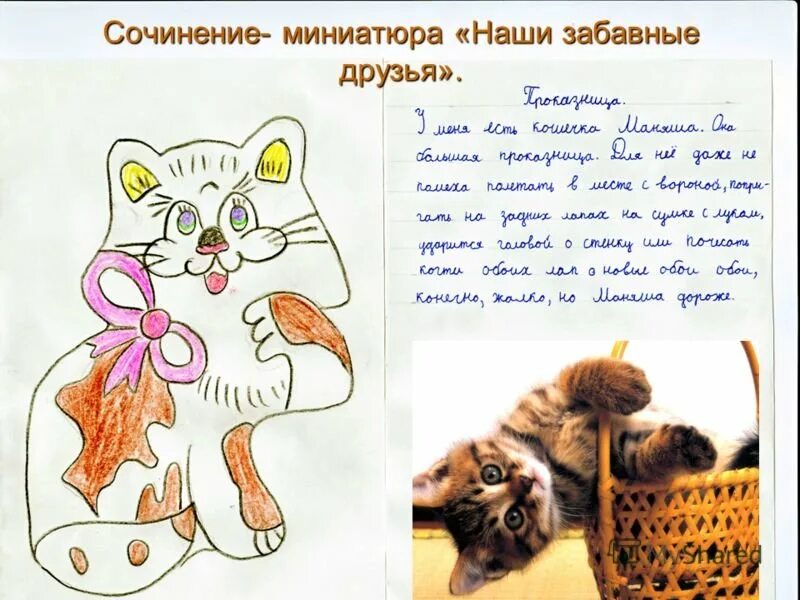 Сочинение- миниатюра «Наши забавные
друзья».
Проказница.
У меня есть кошечка Маняша. Она
большая проказница. Для неё даже не
помеха полетать в месте с вороной, попры-
гать на задних лапах на сумке с луком,
ударится головой о стенку или почесать
когти обоих лап о новые обои обои,
конечно, жалко, но Маняша дороже.
MyShared